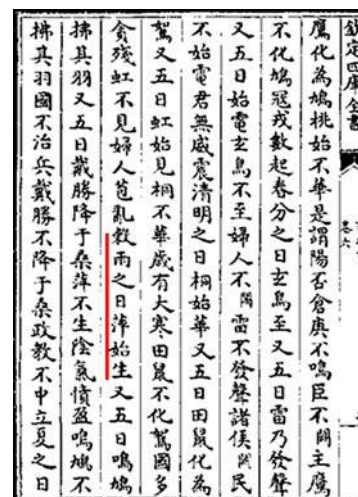 欽定四庫全書
卷六
鷹化為鳩桃始不華是謂陽否倉庚不鳴臣不闕主鷹
不化鳩冦戎數起春分之日玄鳥至又五日雷乃發聲
又五日始電玄鳥不至婦人不闕雷不發聲諸侯闕民
不始電君無威震清明之日桐始華又五日田鼠化為
鴽又五日虹始見桐不華歲有大寒田鼠不化鴽國多
貪殘虹不見婦人苞亂榖雨之日萍始生又五日鳴鳩
拂其羽又五日戴勝降于桑萍不生陰氣憤盈鳴鳩不
拂其羽國不治兵戴勝不降于桑政教不中立夏之日